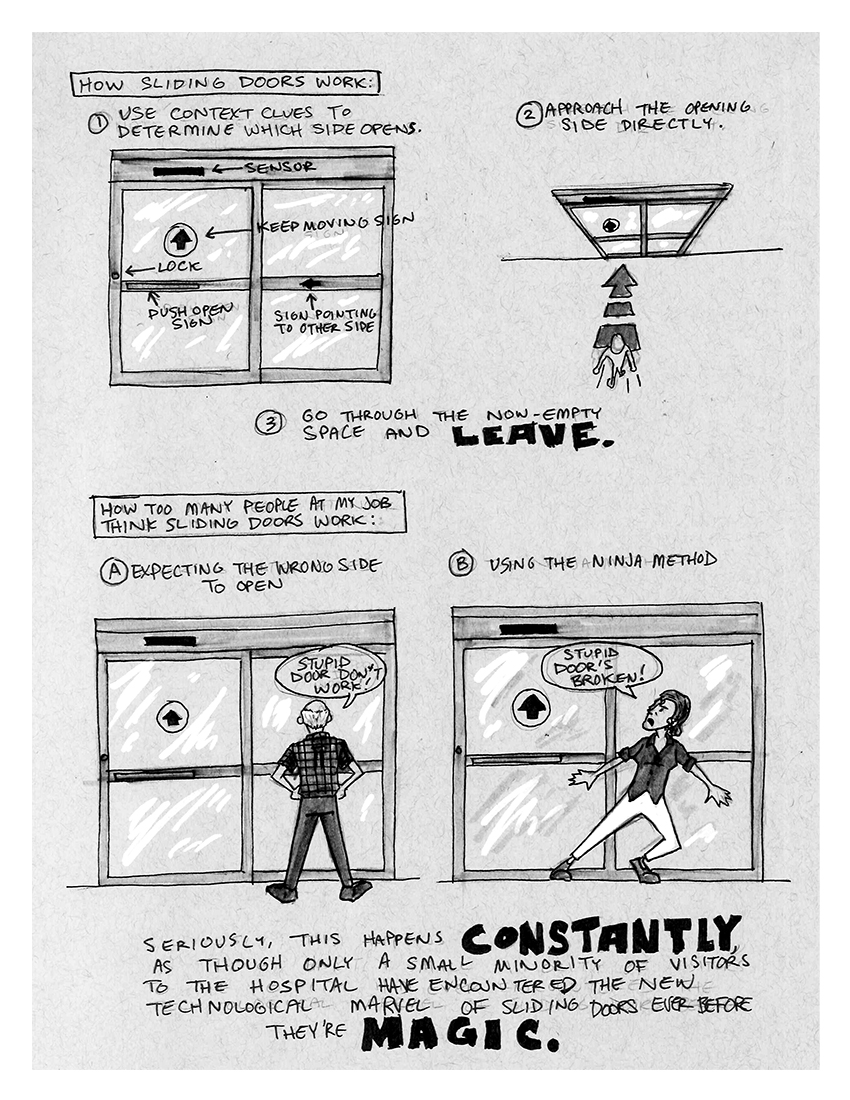 HOW SLIDING DOORS WORK:
① USE CONTEXT CLUES TO
DETERMINE WHICH SIDE OPENS.
SENSOR
KEEP MOVING SIGN
LOCK
PUSH OPEN
SIGN
SIGN POINTING
TO OTHER SIDE
② APPROACH THE OPENING
SIDE DIRECTLY.
③ GO THROUGH THE NOW-EMPTY
SPACE AND LEAVE.
HOW TOO MANY PEOPLE AT MY JOB
THINK SLIDING DOORS WORK:
Ⓐ EXPECTING THE WRONG SIDE
TO OPEN
STUPID
DOOR DON'T
WORK!
Ⓑ USING THE NINJA METHOD
STUPID
DOOR'S
BROKEN!
SERIOUSLY, THIS HAPPENS CONSTANTLY,
AS THOUGH ONLY A SMALL MINORITY OF VISITORS
TO THE HOSPITAL HAVE ENCOUNTERED THE NEW
TECHNOLOGICAL MARVEL OF SLIDING DOORS EVER BEFORE
THEY'RE MAGIC.